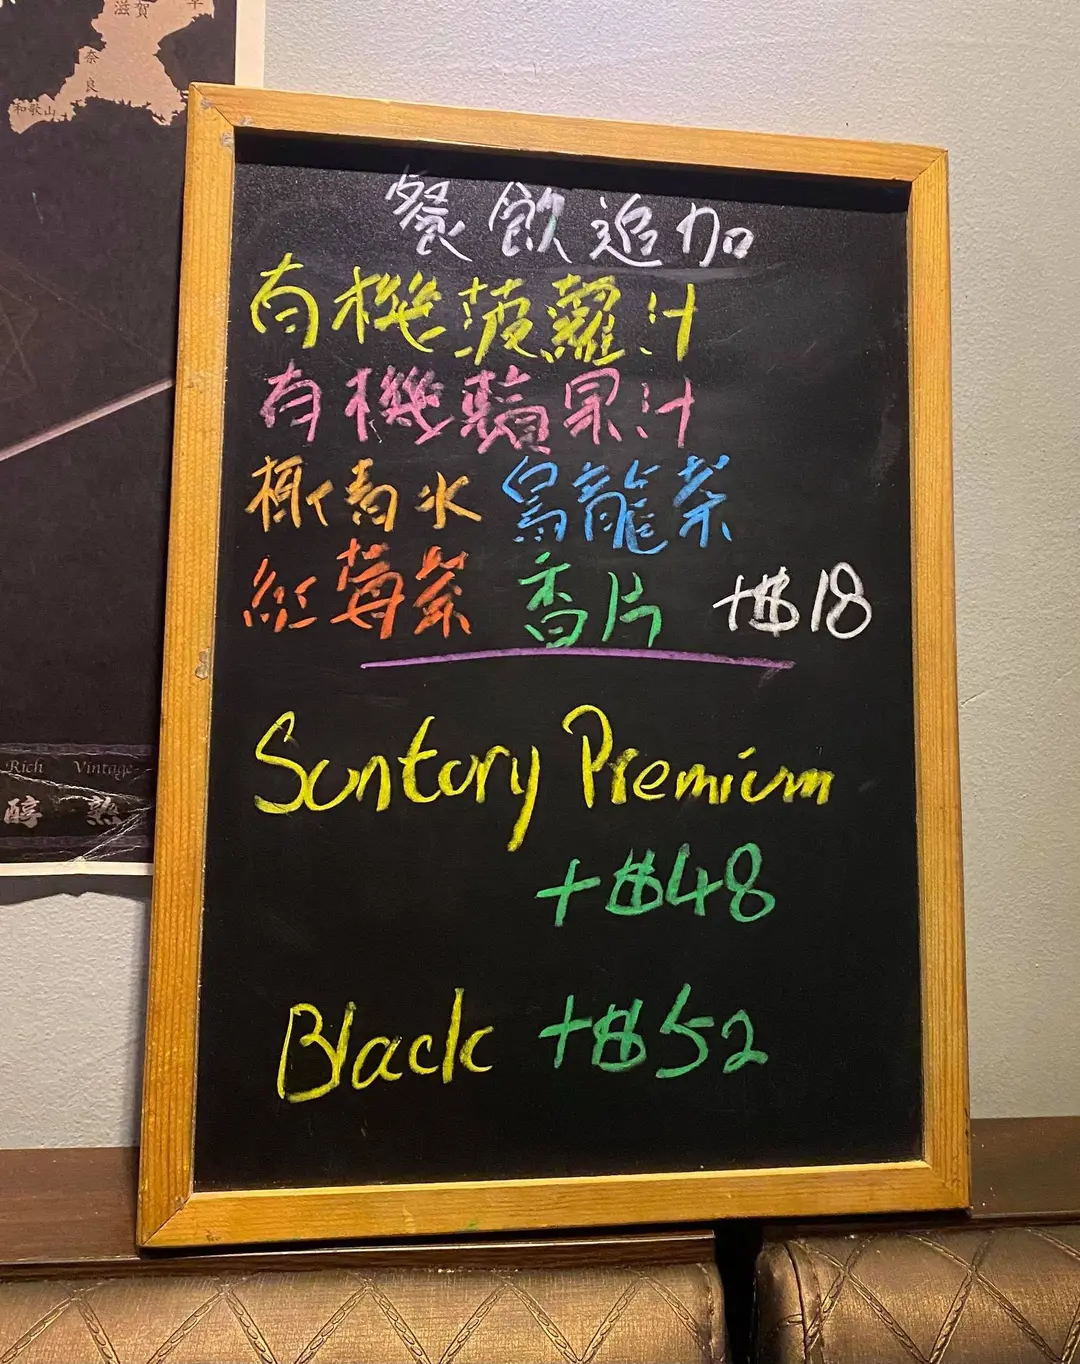 滋賀
奈良
和歌山
Rich Vintage
醇 熟
餐飲追加
有機菠蘿汁
有機蘋果汁
椰青水 烏龍茶
紅莓茶 香片 +$18
Suntory Premium
+$48
Black +$52